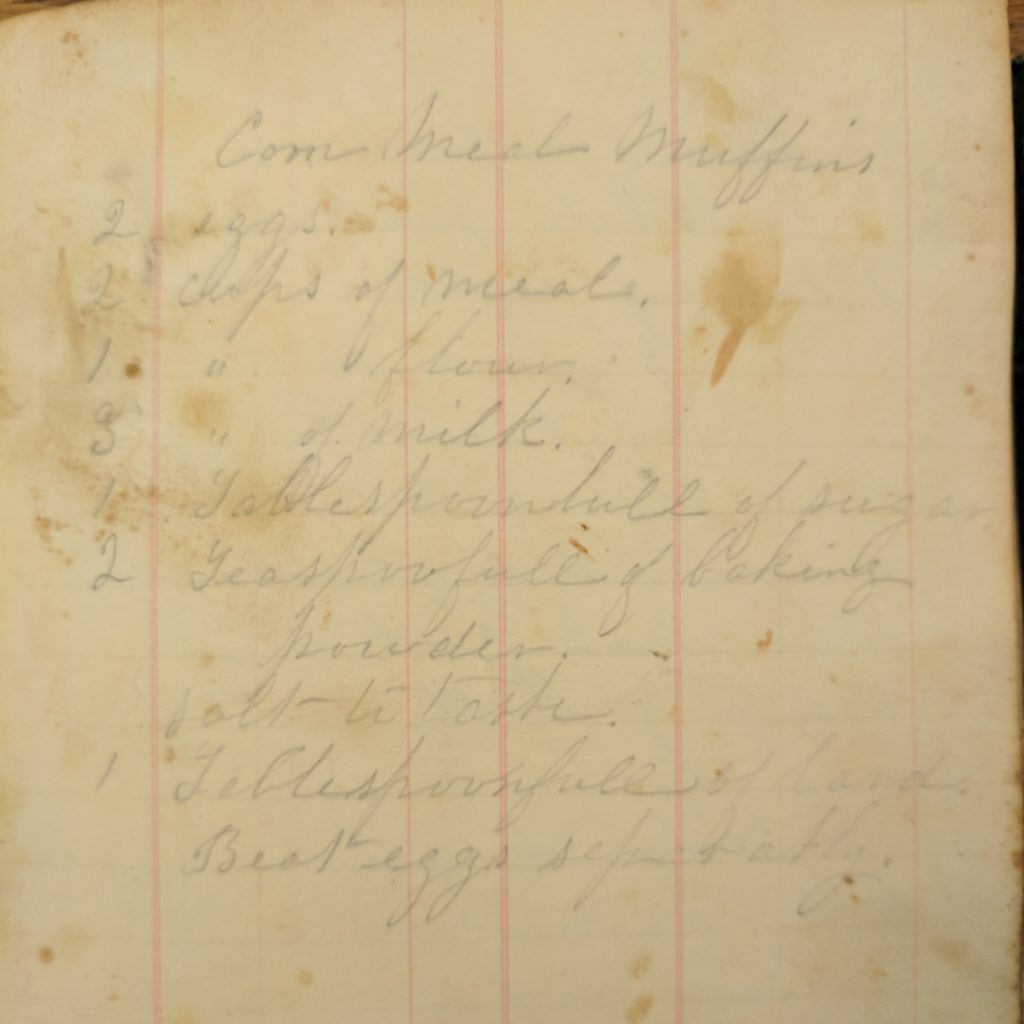 Corn Meal Muffins
2 eggs.
2 cups of meal.
1 " flour.
3 " of milk.
1 Tablespoonfull of sugar
2 Teaspoofull of baking
powder.
salt to taste.
1 Tablespoonfull of lard.
Beat eggs seperatly.